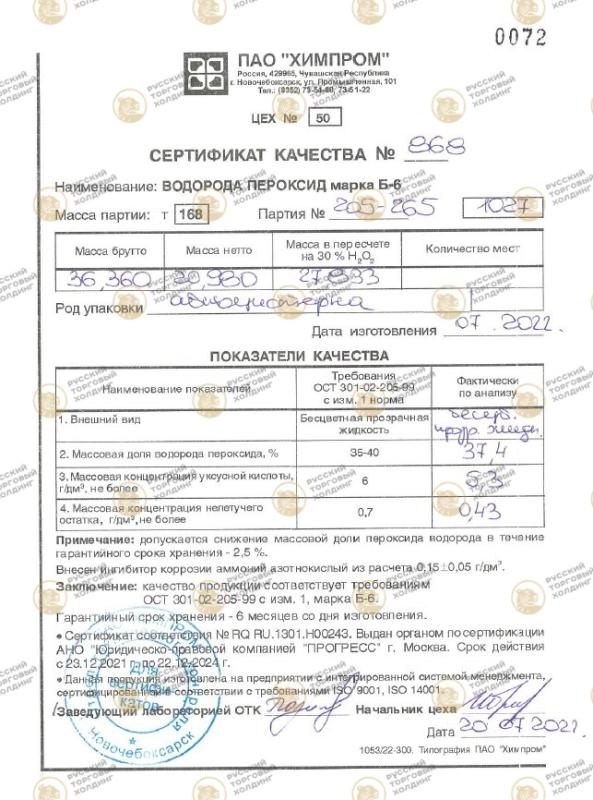 0072
ПАО "ХИМПРОМ"
Россия, 429965, Чувашская Республика
г. Новочебоксарск, ул. Промышленная, 101
Тел.: (8352) 73-54-80, 73-51-22
ЦЕХ № 50
СЕРТИФИКАТ КАЧЕСТВА № 868
Наименование: ВОДОРОДА ПЕРОКСИД марка Б-6
Масса партии: т 168 Партия № 205-265 1027
Масса брутто Масса нетто Масса в пересчете на 30 % H2O2 Количество мест
36,360 20,980
Род упаковки автоцистерна
Дата изготовления 07.2022.
ПОКАЗАТЕЛИ КАЧЕСТВА
Наименование показателей Требования ОСТ 301-02-205-99 с изм. 1 норма Фактически по анализу
1. Внешний вид Бесцветная прозрачная жидкость бесцв. прозр. жидк.
2. Массовая доля водорода пероксида, % 35-40 37,4
3. Массовая концентрация уксусной кислоты, г/дм³, не более 6 5,3
4. Массовая концентрация непетучего остатка, г/дм³,не более 0,7 0,43
Примечание: допускается снижение массовой доли пероксида водорода в течение
гарантийного срока хранения - 2,5 %.
Внесен ингибитор коррозии аммоний азотнокислый из расчета 0,15±0,05 г/дм³.
Заключение: качество продукции соответствует требованиям
ОСТ 301-02-205-99 с изм. 1, марка Б-6.
Гарантийный срок хранения - 6 месяцев со дня изготовления.
• Сертификат соответствия № RQ RU.1301.H00243. Выдан органом по сертификации
АНО "Юридическо-правовой компании "ПРОГРЕСС" г. Москва. Срок действия
с 23.12.2021 г. по 22.12.2024 г.
• Данная продукция изготовлена на предприятии с интегрированной системой менеджмента,
сертифицированной в соответствии с требованиями ISO 9001, ISO 14001.
Заведующий лабораторией ОТК Начальник цеха
Дата 20.07.2022.
1053/22-300. Типография ПАО "Химпром"
Для сертификатов
Новочебоксарск
РУССКИЙ ТОРГОВЫЙ ХОЛДИНГ